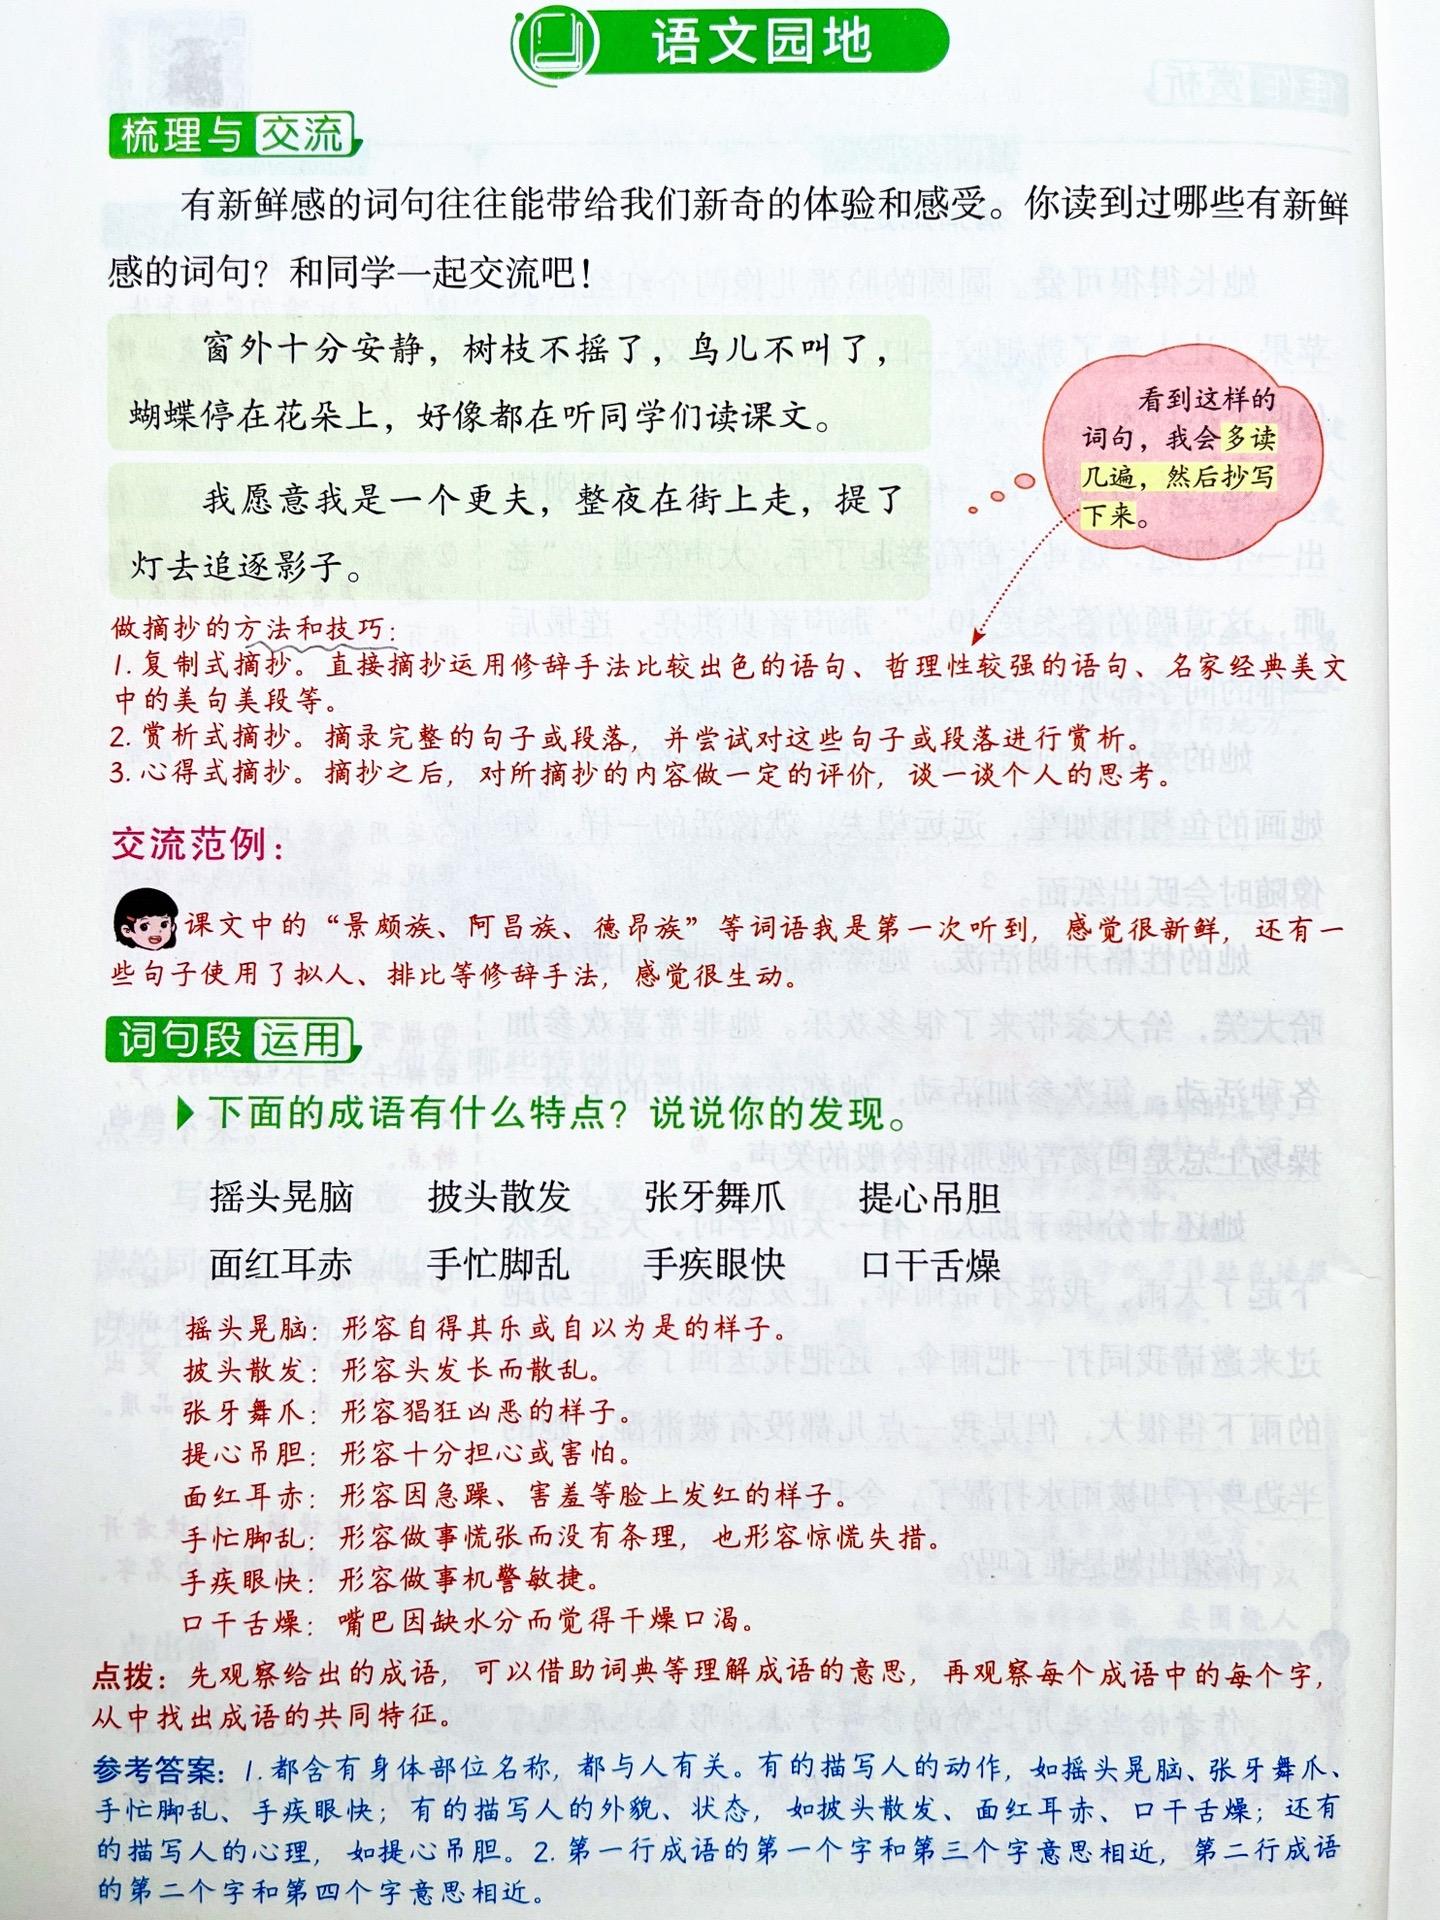 语文园地
梳理与交流
有新鲜感的词句往往能带给我们新奇的体验和感受。你读到过哪些有新鲜
感的词句？和同学一起交流吧！
窗外十分安静，树枝不摇了，鸟儿不叫了，
蝴蝶停在花朵上，好像都在听同学们读课文。
我愿意我是一个更夫，整夜在街上走，提了
灯去追逐影子。
看到这样的
词句，我会多读
几遍，然后抄写
下来。
做摘抄的方法和技巧：
1. 复制式摘抄。直接摘抄运用修辞手法比较出色的语句、哲理性较强的语句、名家经典美文
中的美句美段等。
2. 赏析式摘抄。摘录完整的句子或段落，并尝试对这些句子或段落进行赏析。
3. 心得式摘抄。摘抄之后，对所摘抄的内容做一定的评价，谈一谈个人的思考。
交流范例：
课文中的“景颇族、阿昌族、德昂族”等词语我是第一次听到，感觉很新鲜，还有一
些句子使用了拟人、排比等修辞手法，感觉很生动。
词句段运用
下面的成语有什么特点？说说你的发现。
摇头晃脑 披头散发 张牙舞爪 提心吊胆
面红耳赤 手忙脚乱 手疾眼快 口干舌燥
摇头晃脑：形容自得其乐或自以为是的样子。
披头散发：形容头发长而散乱。
张牙舞爪：形容猖狂凶恶的样子。
提心吊胆：形容十分担心或害怕。
面红耳赤：形容因急躁、害羞等脸上发红的样子。
手忙脚乱：形容做事慌张而没有条理，也形容惊慌失措。
手疾眼快：形容做事机警敏捷。
口干舌燥：嘴巴因缺水分而觉得干燥口渴。
点拨：先观察给出的成语，可以借助词典等理解成语的意思，再观察每个成语中的每个字，
从中找出成语的共同特征。
参考答案：1. 都含有身体部位名称，都与人有关。有的描写人的动作，如摇头晃脑、张牙舞爪、
手忙脚乱、手疾眼快；有的描写人的外貌、状态，如披头散发、面红耳赤、口干舌燥；还有
的描写人的心理，如提心吊胆。2. 第一行成语的第一个字和第三个字意思相近，第二行成语
的第二个字和第四个字意思相近。